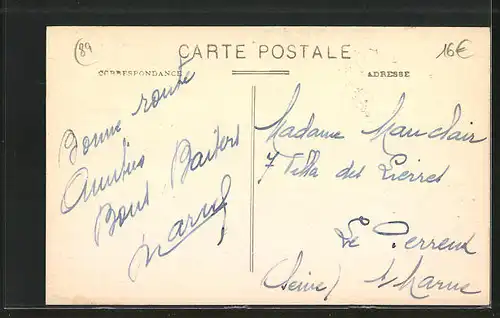 89
CARTE POSTALE
16€
CORRESPONDANCE
ADRESSE
Bonne route
Amitiés
Bons Baisers
Marcel
Madame Mauclair
7 Villa des Pierres
Le Perreux
(Seine) s/Marne